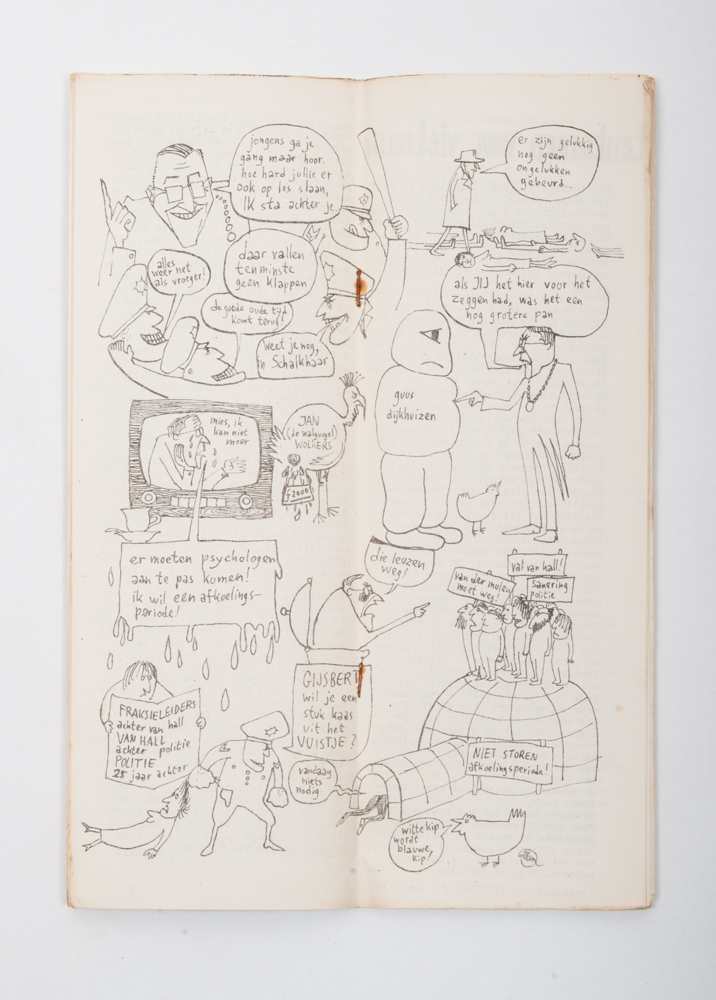 jongens ga je
gang maar hoor.
hoe hard jullie er
ook op los slaan,
IK sta achter je
er zijn gelukkig
nog geen
ongelukken
gebeurd...
alles
weer net
als vroeger!
daar vallen
tenminste
geen klappen
de goede oude tijd
komt terug!
weet je nog,
in Schalkhaar
als JIJ het hier voor het
zeggen had, was het een
nog grotere pan
guus
dijkhuizen
mies, ik
kan niet
meer
JAN
(de walgvogel)
WOLKERS
f2000
er moeten psychologen
aan te pas komen!
ik wil een afkoelings-
periode!
die leuzen
weg!
val van hall!
van der molen
moet weg!
sanering
politie
FRAKSIELEIDERS
achter van hall
VAN HALL
achter politie
POLITIE
25 jaar achter
GIJSBERT
wil je een
stuk kaas
uit het
VUISTJE?
vandaag
niets
nodig
NIET STOREN
afkoelingsperiode!
witte kip
wordt
blauwe
kip!